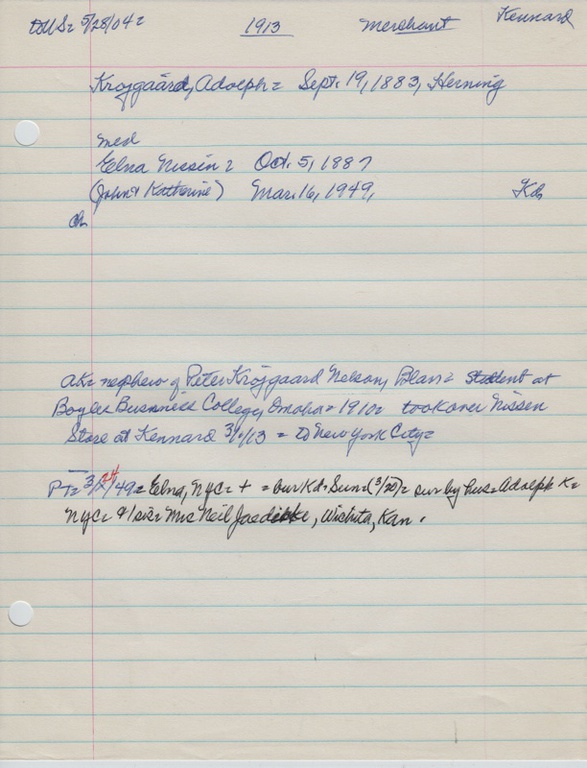 to US= 5/28/04= 1913 Merchant Kennard
Krojgaard, Adolph= Sept. 19, 1883, Herning
med
Elna Nissen= Oct. 5, 1887
(John & Katherine) Mar. 16, 1949, Kd
ch
AK= nephew of Peter Krojgaard Nelson, Blair= student at
Boyles Business College, Omaha= 1910= took over Nissen
Store at Kennard 3/1/13 = to New York City=
PT= 3/24/49= Elna, NYC= + = bur Kd= Sun= (3/20)= sur by hus= Adolph K=
NYC= & 1 sis= Mrs Neil, Wichita, Kan.